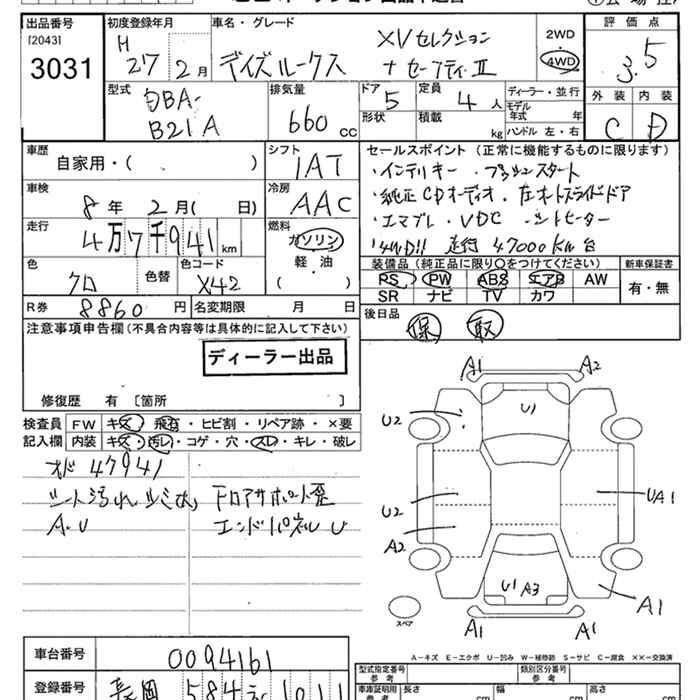 出品番号 初度登録年月 車名・グレード 評価点
[2043] H XVセレクション 2WD
3031 27 2月 デイズルークス +セーフティⅡ 4WD 3.5
型式 DBA- 排気量 ドア 5 定員 4人 ディーラー・並行 外装 内装
B21A 660cc 形状 積載 kg モデル年式 年 C D
ハンドル 左・右
車歴 シフト セールスポイント (正常に機能するものに限ります)
自家用・( ) IAT ・インテリキー ・プッシュスタート
車検 冷房 ・純正CDオーディオ ・左オートスライドドア
8年 2月( 日) AAC ・エマブレ ・VDC ・シートヒーター
走行 燃料 走行 47000km台
4万7千941km ガソリン
色 色替 色コード 軽・油 装備品 (純正品に限り○をつけてください) 新車保証書
クロ X42 ( ) PS PW ABS エアB AW 有・無
SR ナビ TV カワ
R券 8860円 名変期限 月 日 後日品
保 取
注意事項申告欄 (不具合内容等は具体的に記入して下さい)
ディーラー出品
修復歴 有 [箇所 ]
検査員 FW キズ・飛石・ヒビ割・リペア跡・×要
記入欄 内装 キズ・汚レ・コゲ・穴・スレ・キレ・破レ
メド 47941
シート汚れ シミ大 ドロアサポート歪
A.U エンドパネルU
A1 A2
U2 U1
U2 UA1
A2
U1 A3 A1
A1 A1
スペア
A-キズ E-エクボ U-凹み W-補修跡 S-サビ C-腐食 ××-交換済
車台番号 0094161 型式指定番号 参考 類別区分番号 参考
登録番号 長岡 584 車庫証明用 参考 長さ cm 幅 cm 高さ cm